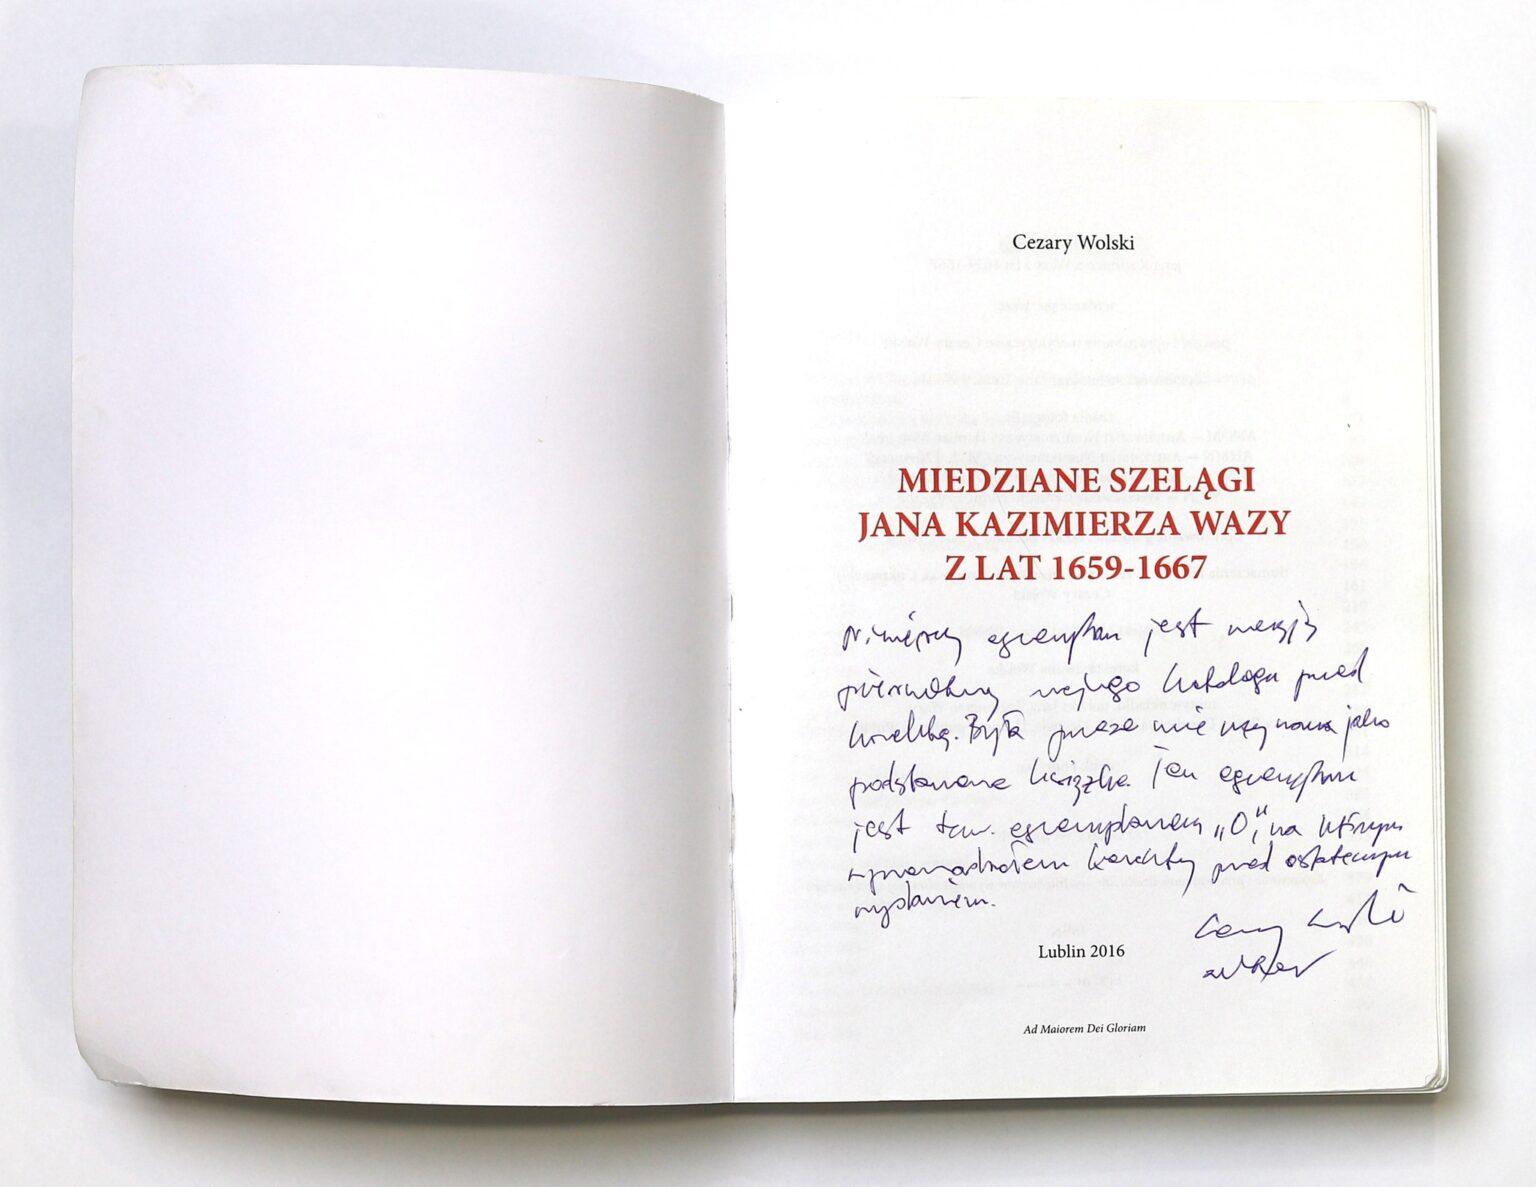 Cezary Wolski
MIEDZIANE SZELĄGI
JANA KAZIMIERZA WAZY
Z LAT 1659-1667
Niniejszy egzemplarz jest wersją
pierwotną mojego katalogu przed
korektą. Była przeze mnie używana jako
podstawowa książka. Ten egzemplarz
jest tzw. egzemplarzem „0", na którym
wprowadzałem korekty przed ostatecznym
wydaniem.
Cezary Wolski
autor
Lublin 2016
Ad Maiorem Dei Gloriam